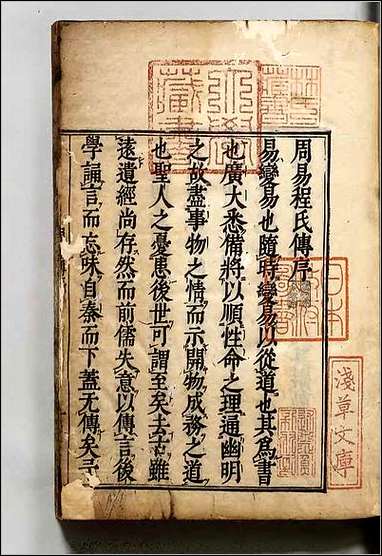 周易程氏傳序
易變易也隨時變易以從道也其為書
也廣大悉備將以順性命之理通幽明
之故盡事物之情而示開物成務之道
也聖人之憂患後世可謂至矣去古雖
遠遺經尚存然而前儒失意以傳言後
學誦言而忘味自秦而下蓋无傳矣予
淺草文庫